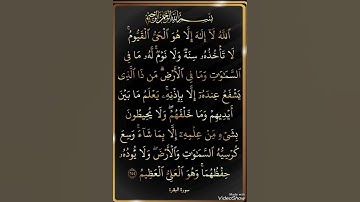 بِسْمِ اللَّهِ الرَّحْمَٰنِ الرَّحِيمِ
اللَّهُ لَا إِلَٰهَ إِلَّا هُوَ الْحَيُّ الْقَيُّومُ ۚ
لَا تَأْخُذُهُ سِنَةٌ وَلَا نَوْمٌ ۚ لَّهُ مَا فِي
السَّمَاوَاتِ وَمَا فِي الْأَرْضِ ۗ مَن ذَا الَّذِي
يَشْفَعُ عِندَهُ إِلَّا بِإِذْنِهِ ۚ يَعْلَمُ مَا بَيْنَ
أَيْدِيهِمْ وَمَا خَلْفَهُمْ ۖ وَلَا يُحِيطُونَ
بِشَيْءٍ مِّنْ عِلْمِهِ إِلَّا بِمَا شَاءَ ۚ وَسِعَ
كُرْسِيُّهُ السَّمَاوَاتِ وَالْأَرْضَ ۖ وَلَا يَئُودُهُ
حِفْظُهُمَا ۚ وَهُوَ الْعَلِيُّ الْعَظِيمُ
سورة البقرة
Made with
VideoShow